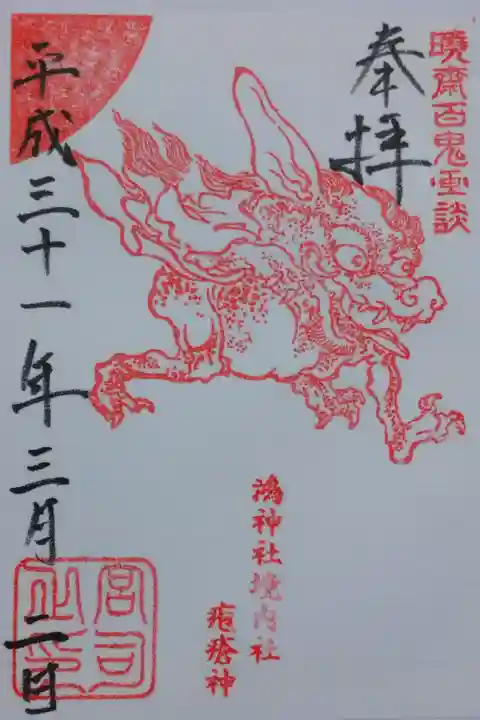 暁斎百鬼画談
奉拝
鴻神社境内社
疱瘡神
平成三十一年三月二日
宮司之印